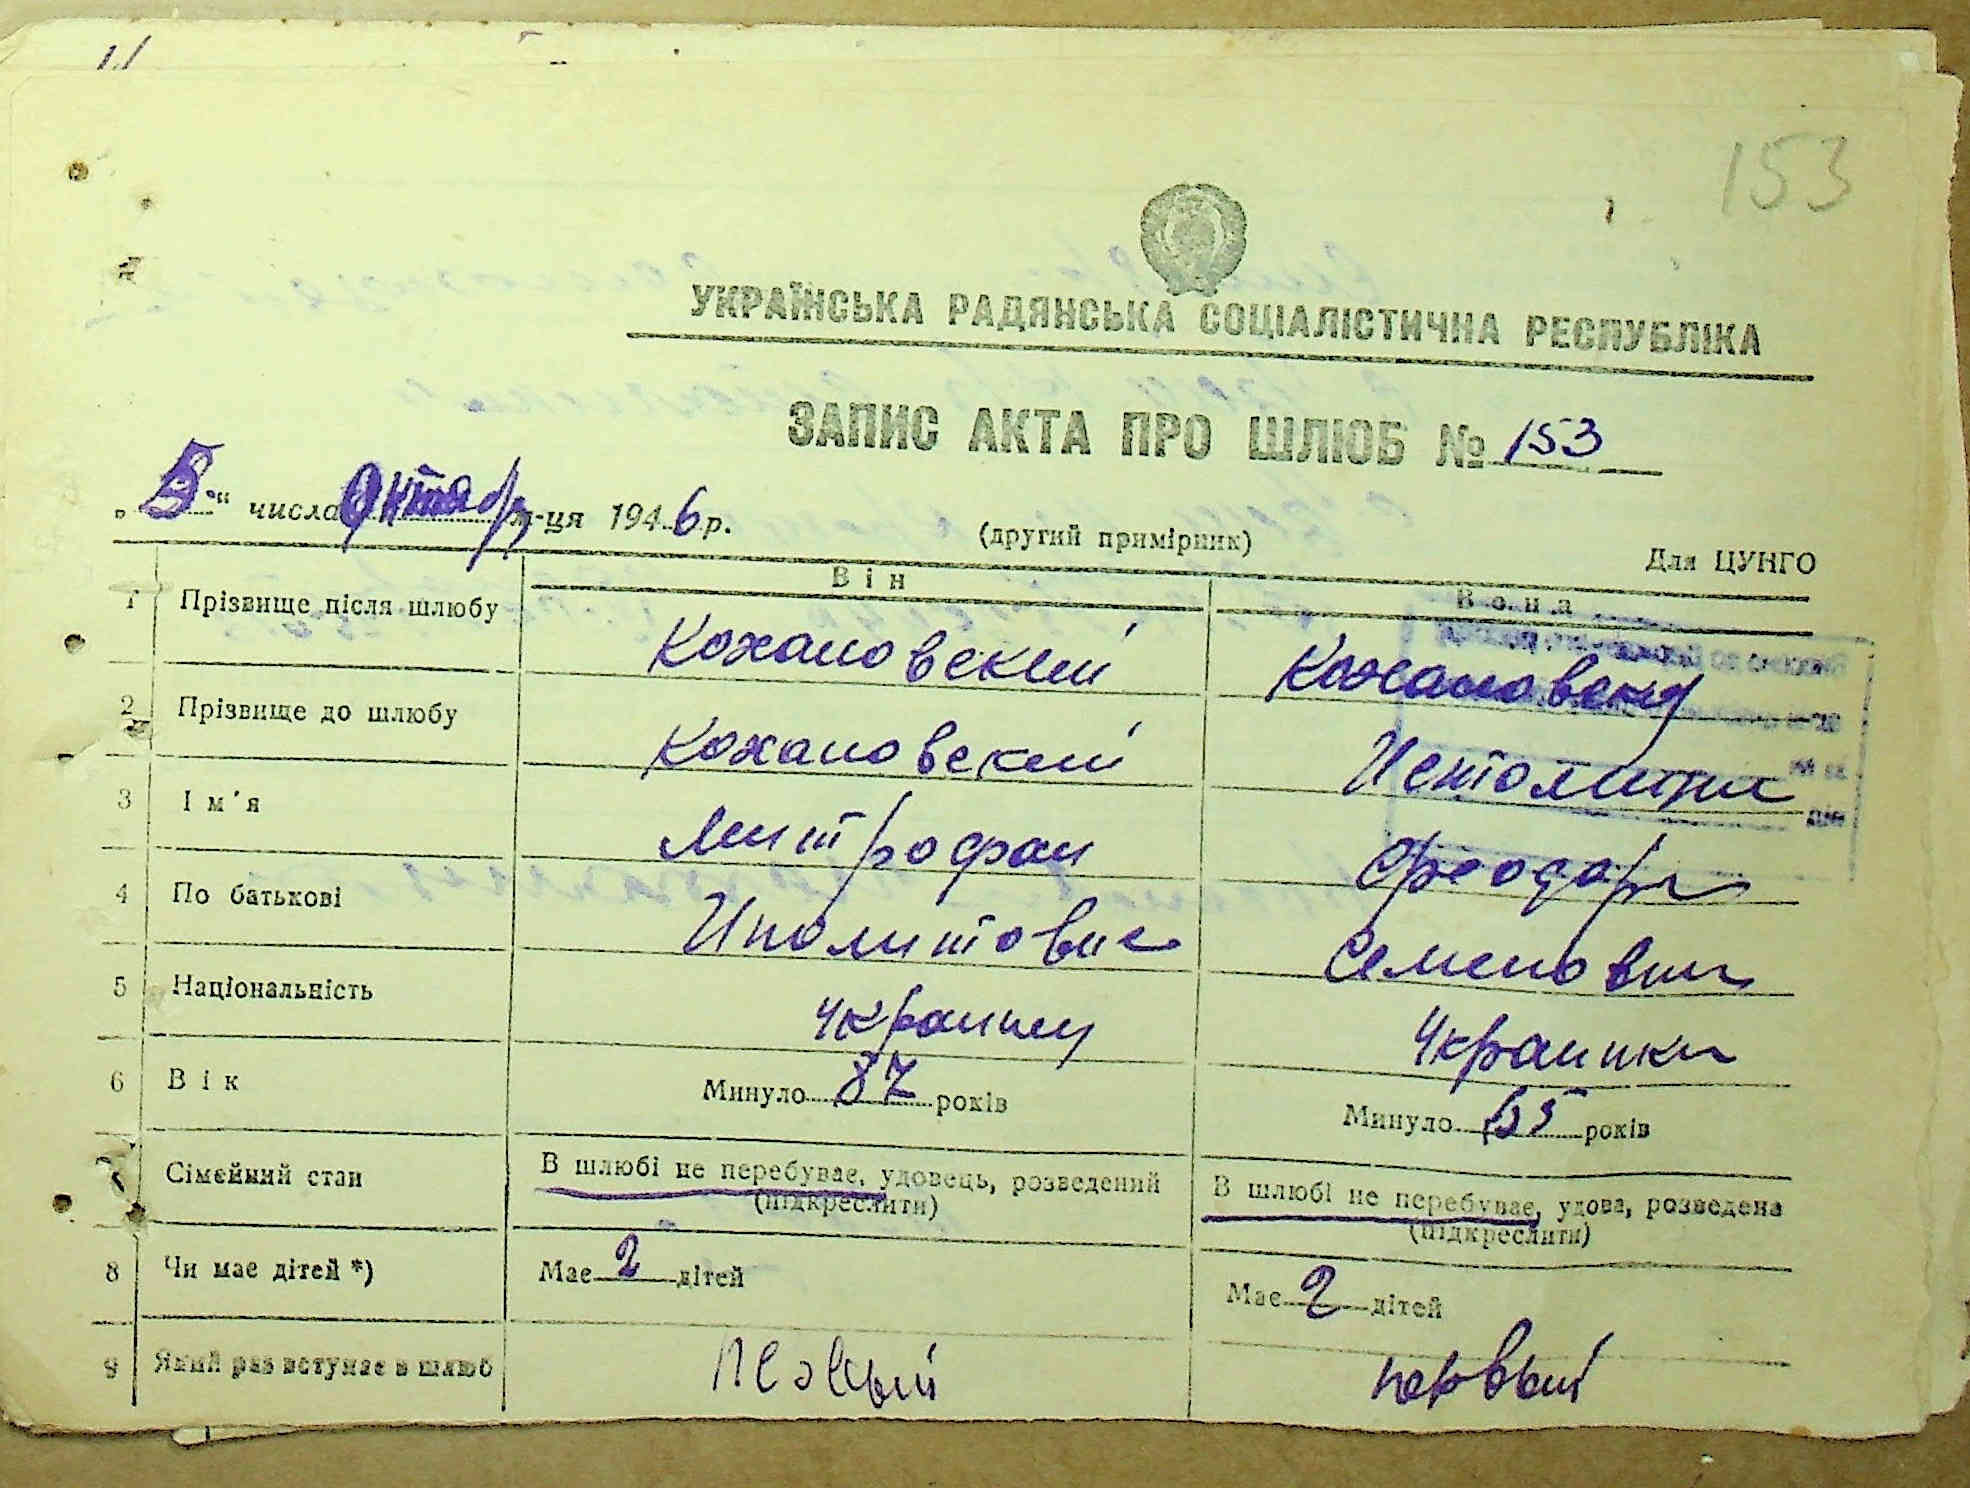 153
УКРАЇНСЬКА РАДЯНСЬКА СОЦІАЛІСТИЧНА РЕСПУБЛІКА
ЗАПИС АКТА ПРО ШЛЮБ № 153
„5“ числа Октябр м-ця 1946 р.
(другий примірник)
Для ЦУНГО
Він Вона
1 Прізвище після шлюбу Кохановский Кохановска
2 Прізвище до шлюбу Кохановский
3 Ім'я Митрофан Феодора
4 По батькові Иполитович Семеновна
5 Національність украинец Украинка
6 Вік Минуло 87 років Минуло 65 років
7 Сімейний стан В шлюбі не перебуває, удовець, розведений В шлюбі не перебуває, удова, розведена
(підкреслити) (підкреслити)
8 Чи має дітей *) Має 2 дітей Має 2 дітей
9 Який раз вступає в шлюб первый первый